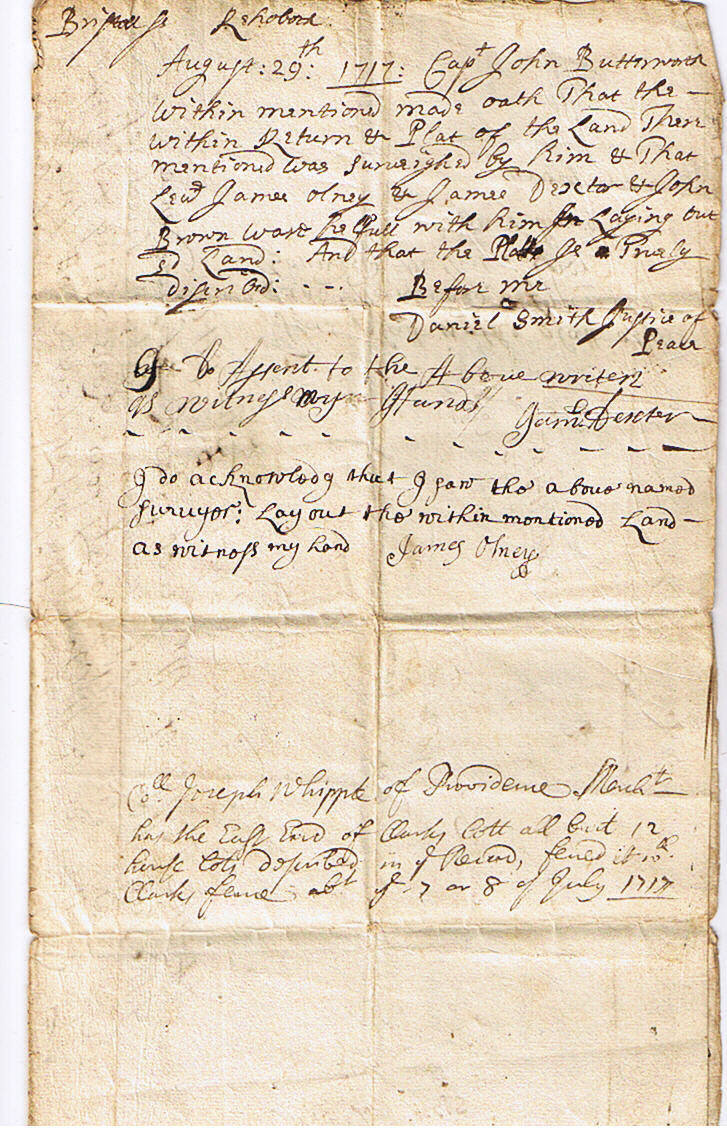 Bristoll ss Rehoboth
August: 29:th 1717: Capt John Butterworth
within mentioned made oath That the —
within Return & Plat of the Land There
mentioned was surveighed by him & That
Leut James Olney & James Dexctor & John
Brown ware helpfull with him In Laying out
sd Land: And that the Platt Is Truely
discribd: - - - Before me
Daniel Smith Justice of
Peace
I Do Assent to the Above writen
as witness my Hand James Dexter
I do acknowledg that I saw the above named
survyer: Lay out the within mentioned Land —
as witness my hand James Olney
Coll. Joseph Whipple of Providence Mercht
has the East End of Clarks lott all but 12
house lots described in ye Record, fenced it wth
Clarks fence abt ye 7 or 8 of July 1717